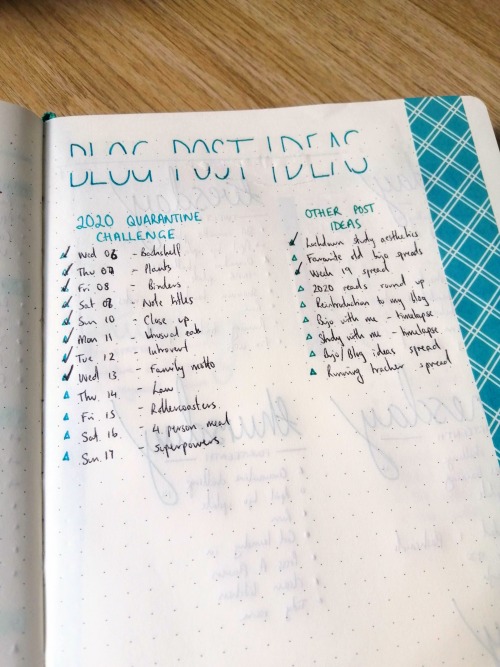 BLOG POST IDEAS
2020 QUARANTINE
CHALLENGE
Wed 06 - Bookshelf
Thu 07 - Plants
Fri 08 - Binders
Sat 09 - Note titles
Sun 10 - Close up
Mon 11 - Unusual eats
Tue 12 - Introvert
Wed 13 - Family motto
Thu 14 - Law
Fri 15 - Rollercoasters
Sat 16 - 4 person meal
Sun 17 - Superpowers
OTHER POST
IDEAS
Lockdown study aesthetics
Favourite old bujo spreads
Week 19 spread
2020 reads round up
Reintroduction to my blog
Bujo with me - timelapse
Study with me - timelapse
Bujo/Blog ideas spread
Running tracker spread